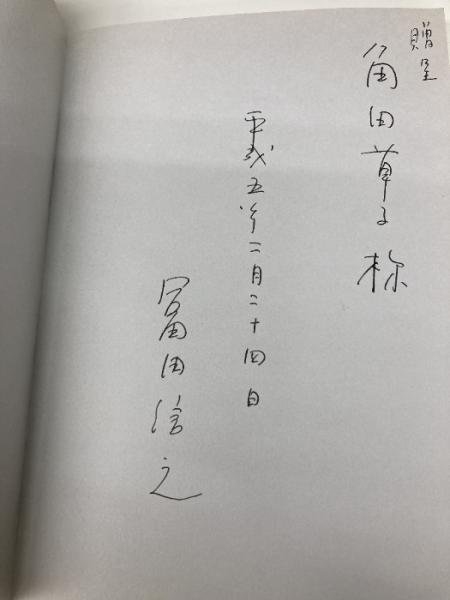 贈呈
角田草子様
平成五年二月二十四日
冨田信之